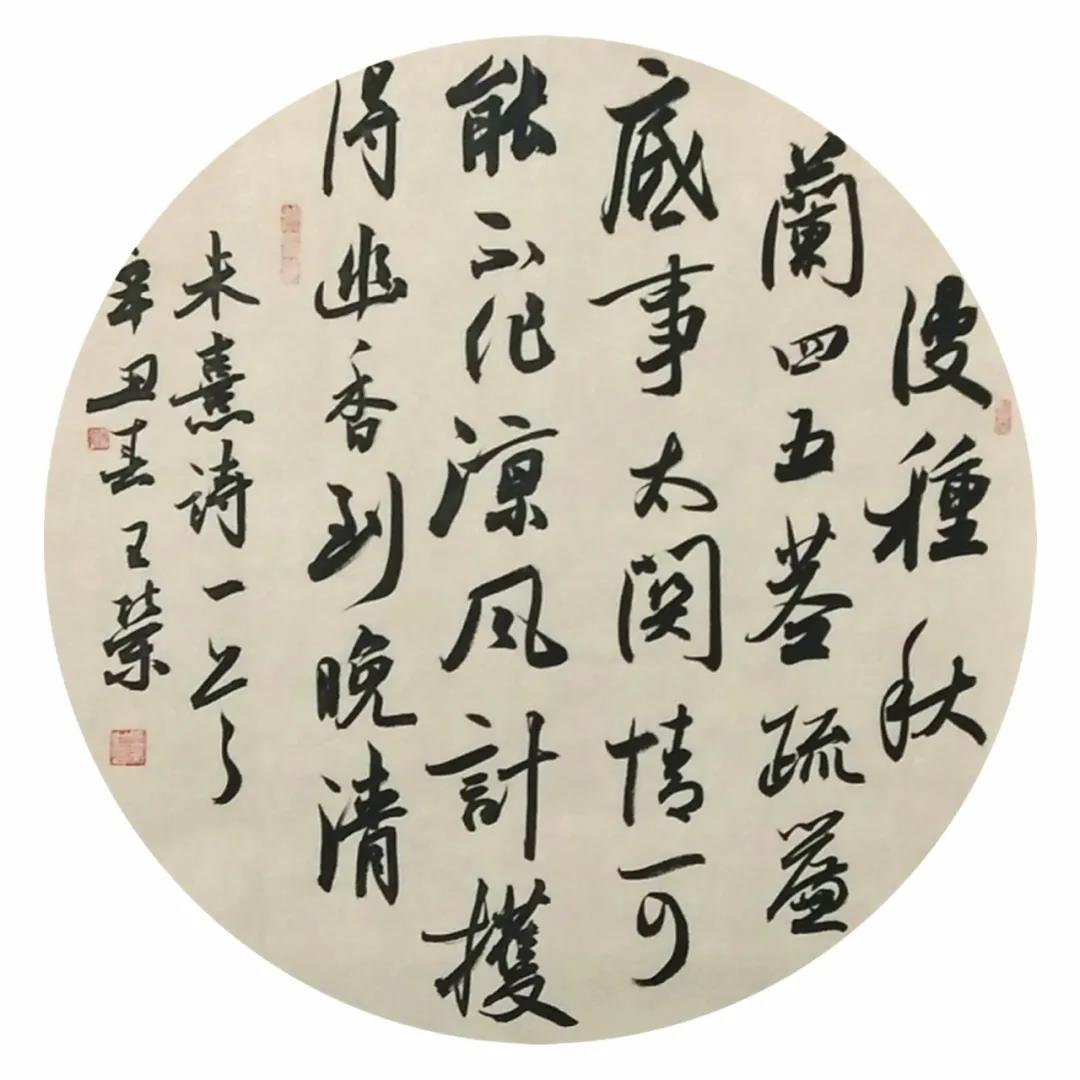 漫種秋
蘭四五莖疏簾
底事太関情可
能不作涼風計擭
得幽香到晚清
朱熹詩一首
辛丑春王榮